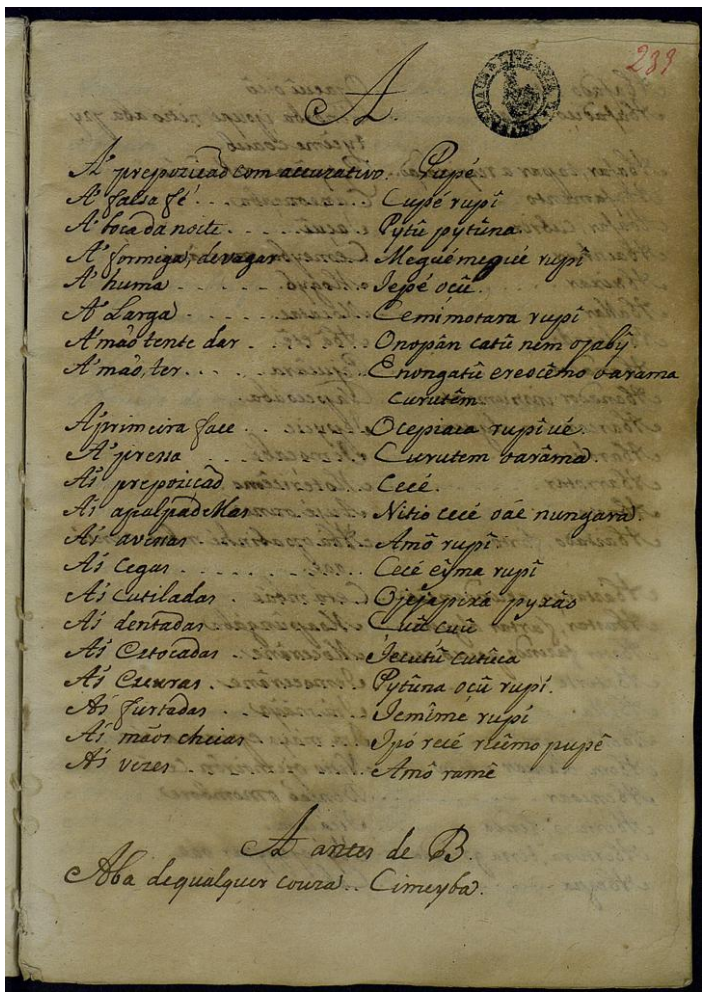 233
A.
A' prepozicaõ com accuzativo. Pupé
A' falsa fé . . . . Cupé rupî
A' boca da noite . . . . . Pytũ pytũna.
A' formiga, devagar Meguémegué rupî
A' huma . . . . . . . Iepé ocũ.
A' Larga . . . . . . Cemimotara rupî
A' maõ tente dar . . . Onopân catũ nem ojabỹ
A' maõ, ter . . . . . Enongatũ ereocêmo oarama
curutêm
A' primeira face . . . Ocepiaca rupî ué.
A' pressa . . . . . . Curutem oarâma.
A's prepozicaõ . . . . Cecé.
A's apalpadellas . . . Nitio cecé oáe nungara.
A's avenas . . . . . Amô rupî
A's Cegas . . . . . . . Cecé eỹma rupî
A's cutiladas . . . . Ojejapixá pyxáo
A's dentadas . . . . Cuũ cuũ
A's Estocadas . . Iecutũ cutũca
A's Escuras . . . Pytũna ocũ rupî.
A's furtadas . . . Iemîmé rupî
A's mãos cheias . . Ipó recé niẽmo pupê
A's vezes . . . . Amô ramê
A antes de B.
Aba de qualquer couza . . Cimeyba.